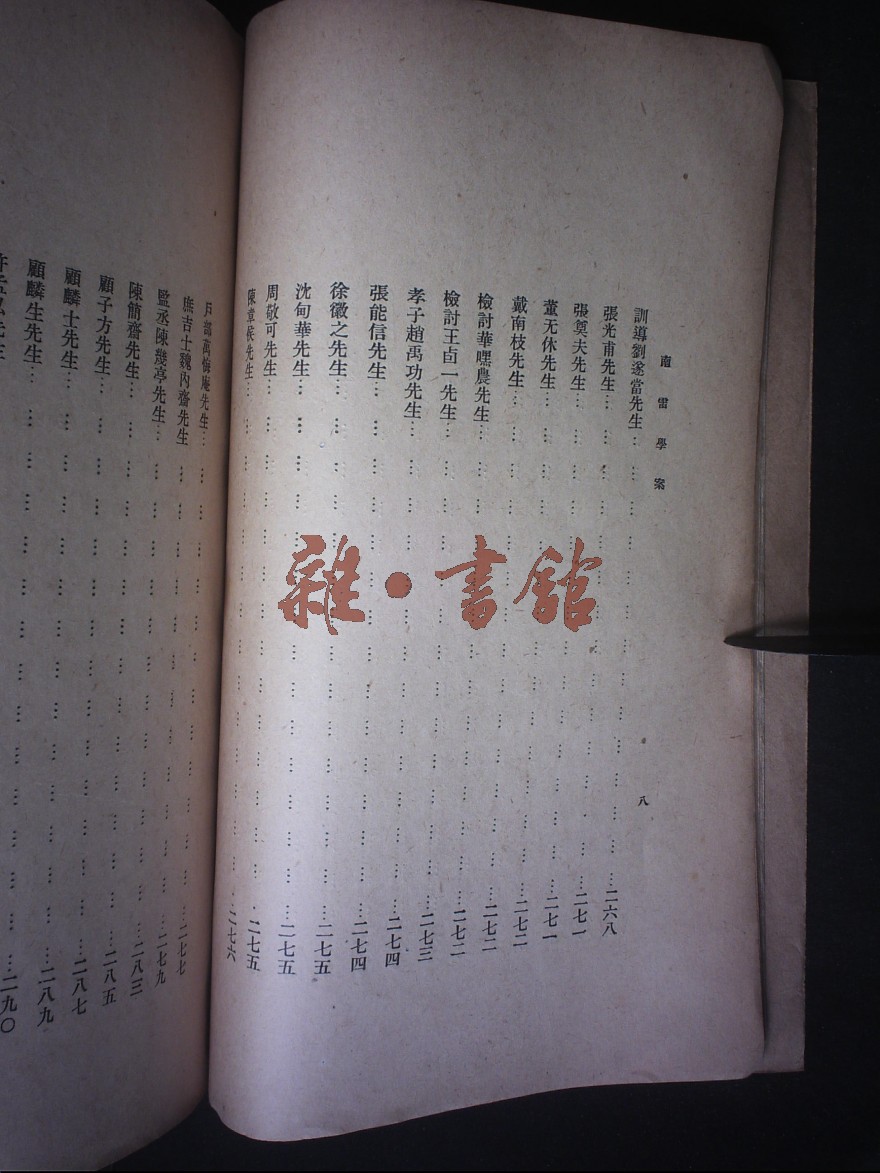 南雷學案
八
訓導劉遂當先生…………二六八
張光甫先生…………二七一
張奠夫先生…………二七一
董无休先生…………二七二
戴南枝先生…………二七二
檢討華嘿農先生…………二七二
檢討王貞一先生…………二七三
孝子趙禹功先生…………二七四
張能信先生…………二七四
徐徽之先生…………二七五
沈甸華先生…………二七五
周敬可先生…………二七五
陳章侯先生…………二七六
戶部萬悔庵先生…………二七七
庶吉士魏內齋先生…………二七九
監丞陳幾亭先生…………二八三
陳簡齋先生…………二八五
顧子方先生…………二八七
顧麟士先生…………二八九
顧麟生先生…………二九〇
雜·書館